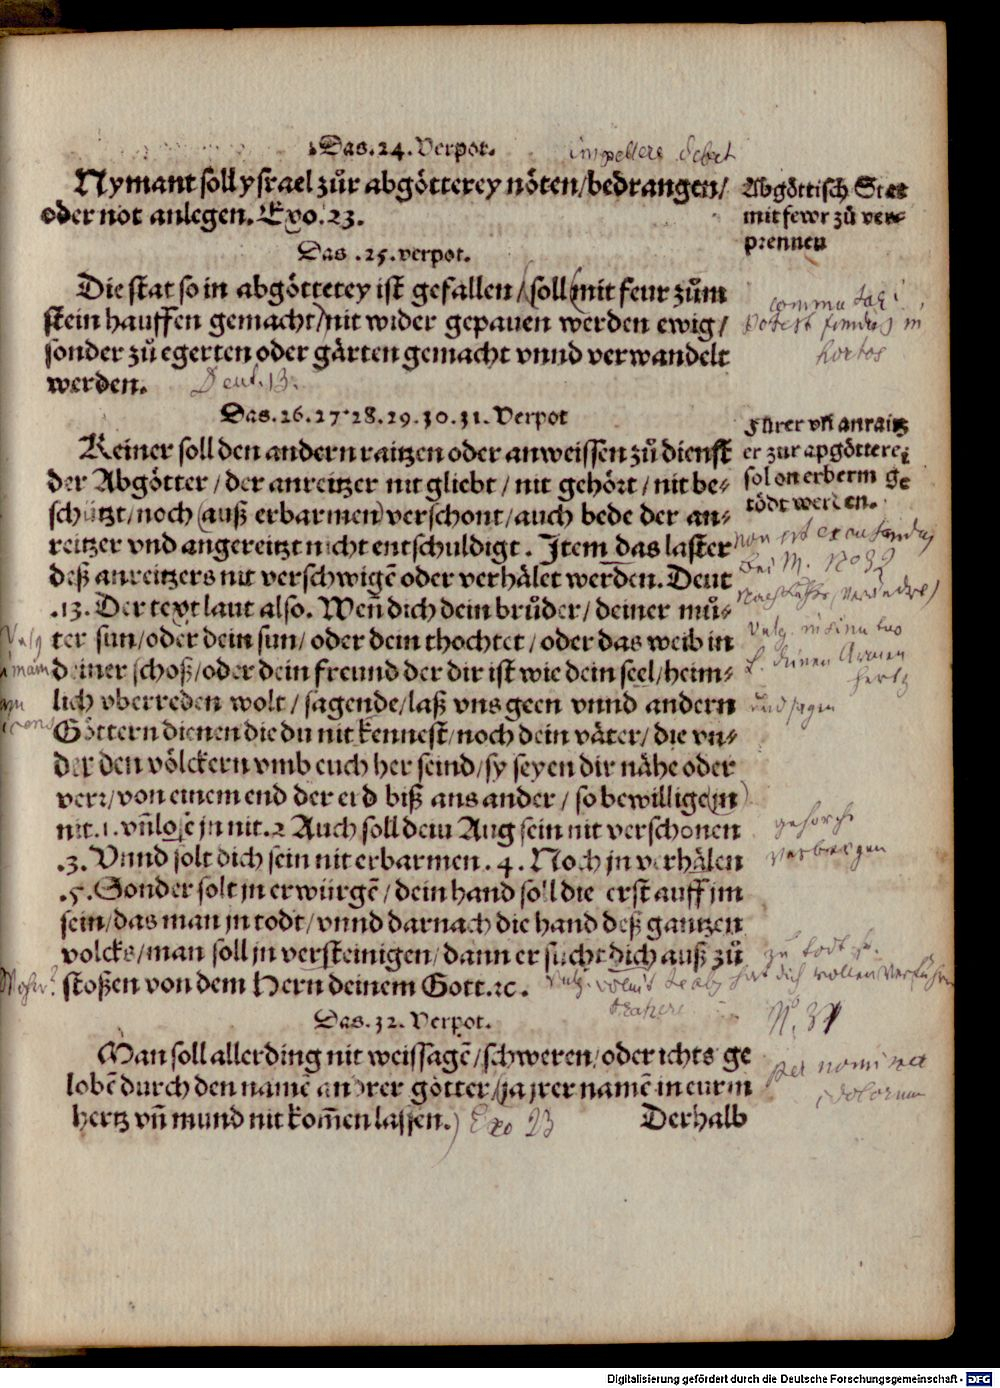 Das .24. Verpot.
impellere debet
Nymant soll ysrael zůr abgötterey nöten/bedrangen/
oder not anlegen. Exo. 23.
Abgöttisch Stet
mit fewr zů ver-
prennen
Das .25. verpot.
Die stat so in abgötterey ist gefallen/(soll(mit feur zům
stein hauffen gemacht/nit wider gepauen werden ewig/
sonder zů egerten oder gärten gemacht vnnd verwandelt
werden. Deut. 13.
potest fundus in
hortos
Das .26.27.28.29.30.31. Verpot
Keiner soll den andern raitzen oder anweissen zů dienst
der Abgötter/der anreitzer nit gliebt/nit gehört/nit be-
schützt/noch (auß erbarmen) verschont/auch bede der an-
reitzer vnd angereitzt nicht entschuldigt. Item das laster
deß anreitzers nit verschwigē oder verhälet werden. Deut
.13. Der text laut also. Wen̄ dich dein brůder/deiner mů-
ter sun/oder dein sun/oder dein thochter/oder das weib in
deiner schoß/oder dein freund der dir ist wie dein seel/heim-
lich vberreden wolt/sagende/laß vns geen vnnd andern
Göttern dienen die du nit kennest/noch dein väter/die vn-
der den völckern vmb euch her seind/sy seyen dir nähe oder
verr/von einem end der erd biß ans ander/so bewillige(jn)
nit.1. vn̄ lose jn nit.2 Auch soll dein Aug sein nit verschonen
.3. Vnnd solt dich sein nit erbarmen.4. Noch jn verhälen
.5. Sonder solt jn erwürgē/dein hand soll die erst auff jm
sein/das man jn todt/vnnd darnach die hand deß gantzen
volcks/man soll jn versteinigen/dann er sucht dich auß zů
stoßen von dem Hern deinem Gott.ꝛc.
Fürer vn̄ anraitz
er zur apgötterei
sol on erberm ge
tödt werden.
non est excusandus
bei M. No 32
Vulg. in sinu tuo
deinen Armen
hertz
und sagen
gehorche
verbergen
zu todt
hat dich wollen verführen
trahere
N. 37
Das .32. Verpot.
Man soll allerding nit weissagē/schweren/oder ichts ge
lobē durch den namē andrer götter/(ja jrer namē in eurm
hertz vn̄ mund nit kom̄en lassen.) Exo 23
per nomina
idolorum
Derhalb
Digitalisierung gefördert durch die Deutsche Forschungsgemeinschaft - DFG